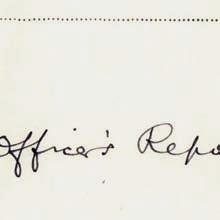 Officer's Repo